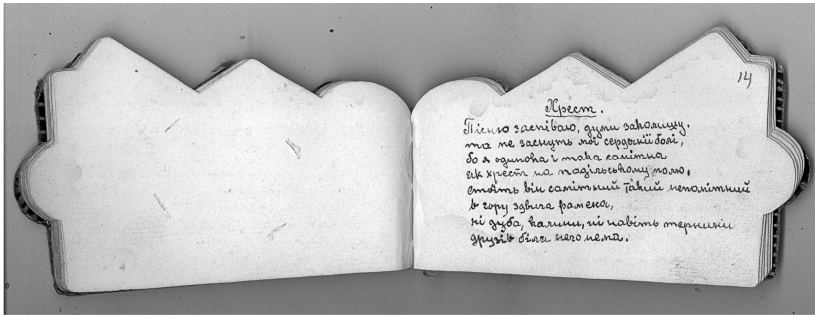 14
Хрест.
Пісню заспіваю, думи заколишу.
та не заснуть мої сердешні болі,
бо я одинока і така самітна
як хрест на подільському полю.
стоїть він самітний такий непомітний
в гору здвига рамена,
ні дуба, калини, ні навіть тернини
друзів біля него нема.